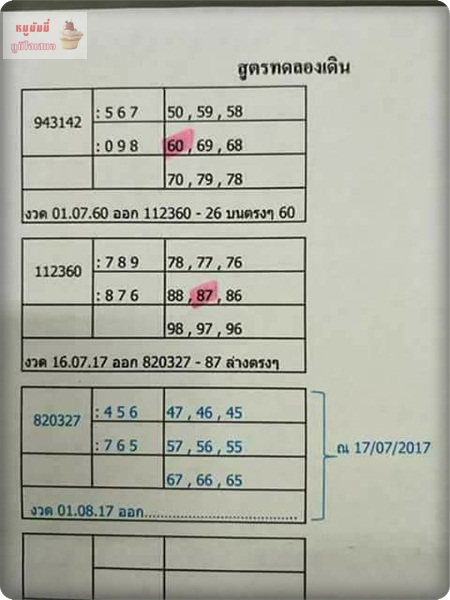 หมูมัมมี่
ภูมิใจเสนอ
สูตรทดลองเดิน
943142 : 5 6 7 50 , 59 , 58
: 0 9 8 60 , 69 , 68
70 , 79 , 78
งวด 01.07.60 ออก 112360 - 26 บนตรงๆ 60
112360 : 7 8 9 78 , 77 , 76
: 8 7 6 88 , 87 , 86
98 , 97 , 96
งวด 16.07.17 ออก 820327 - 87 ล่างตรงๆ
820327 : 4 5 6 47 , 46 , 45
: 7 6 5 57 , 56 , 55
67 , 66 , 65
งวด 01.08.17 ออก......................................
ณ 17/07/2017